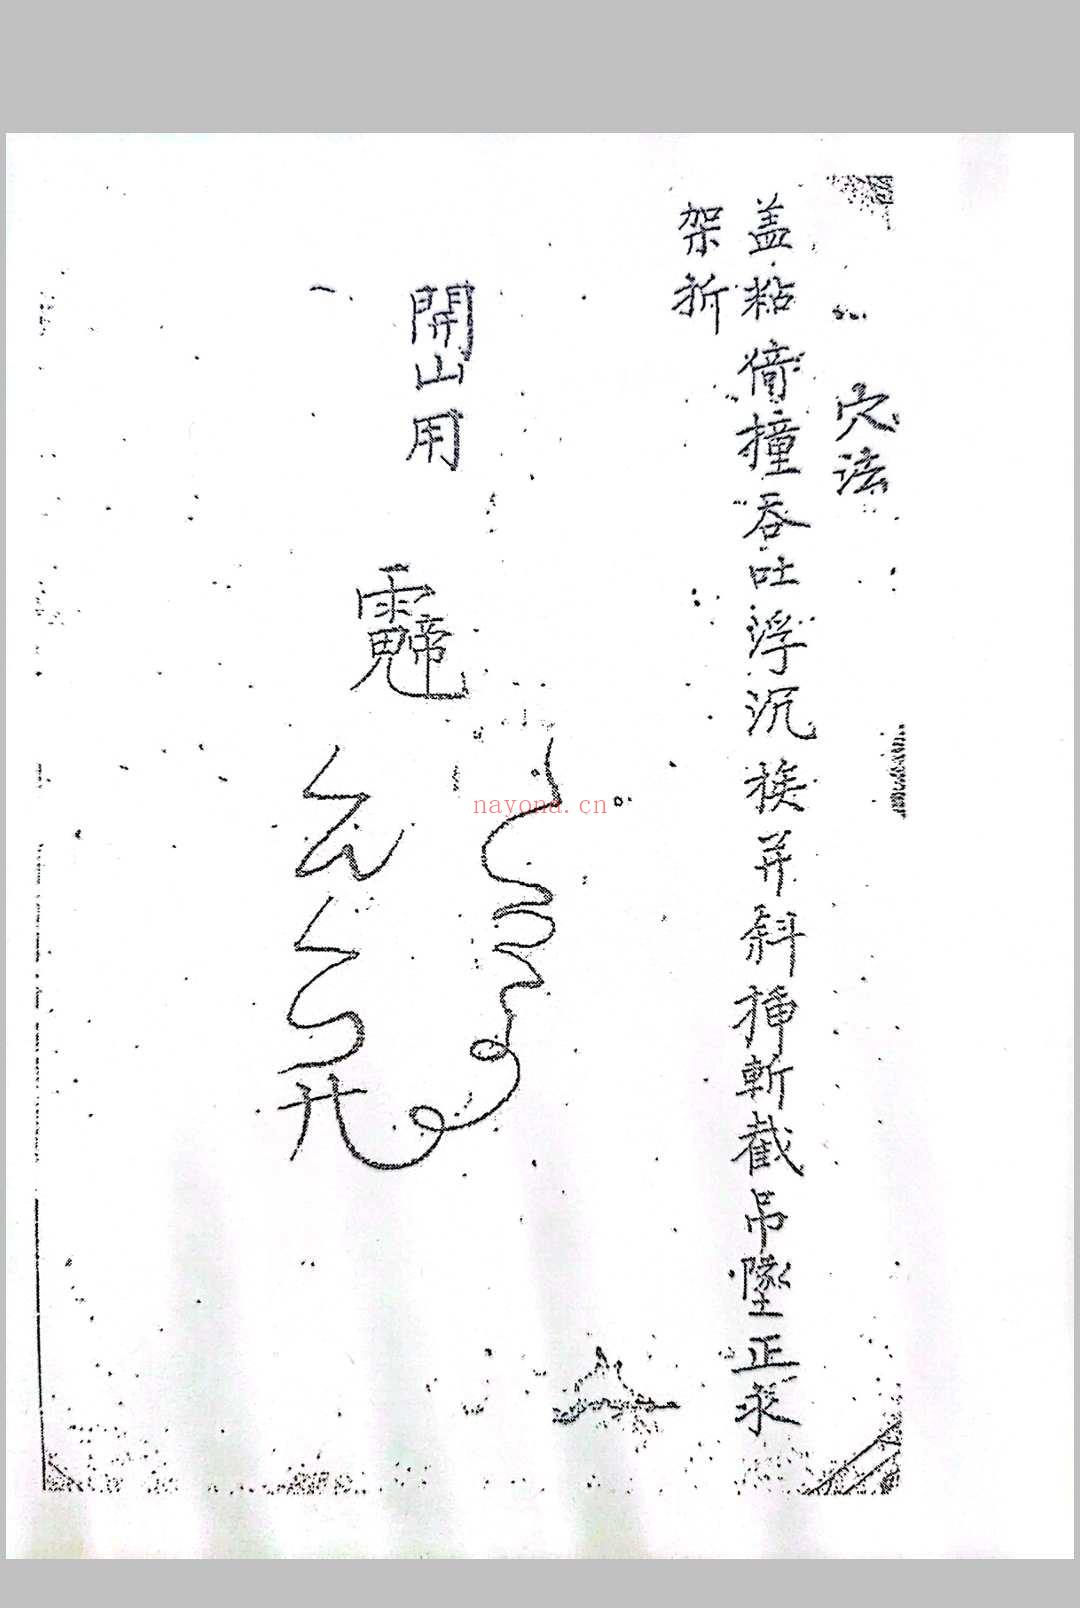 穴法
盖粘倚撞吞吐浮沉挨并斜插斬截吊墜正求
架折
開山用
nayona.cn